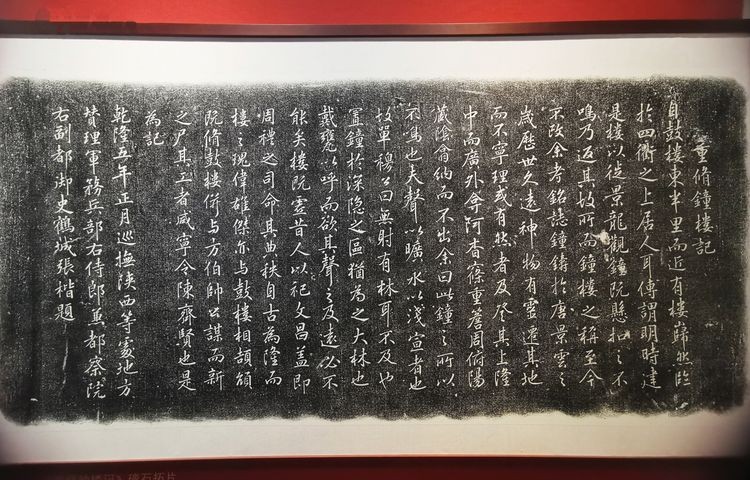 重脩鐘樓記
自鼓樓東半里而近有樓巋然臨
於四衢之上居人耳傳謂明時建
是樓以從景龍觀鐘旣懸扣之不
鳴乃返其故所而鐘樓之称至今
不改余考銘誌鐘鑄於唐景雲之
歲歷世久遠神物有靈遷其地
而不寧理或有然者及登其上隆
中而廣外弇阿杳窱重簷周俯陽
藏陰翕納而不出余曰此鐘之所以
不鳴也夫聲以曠水以淺宣者也
故單穆公曰無射有林耳不及也
置鐘於深隐之區猶為之大林也
戴甕以呼而欲其聲之及遠必不
能矣樓旣虛昔人以祀文昌蓋即
周禮之司命其典秩自古為隆而
樓之瑰偉雄傑尔与鼓樓相頡頏
旣脩鼓樓併与方伯帥公謀而新
之尸其工者咸寧令陳齊賢也是
為記
乾隆五年正月巡撫陝西等處地方
贊理軍務兵部右侍郎兼都察院
右副都御史鶴城張楷題
碑石拓片